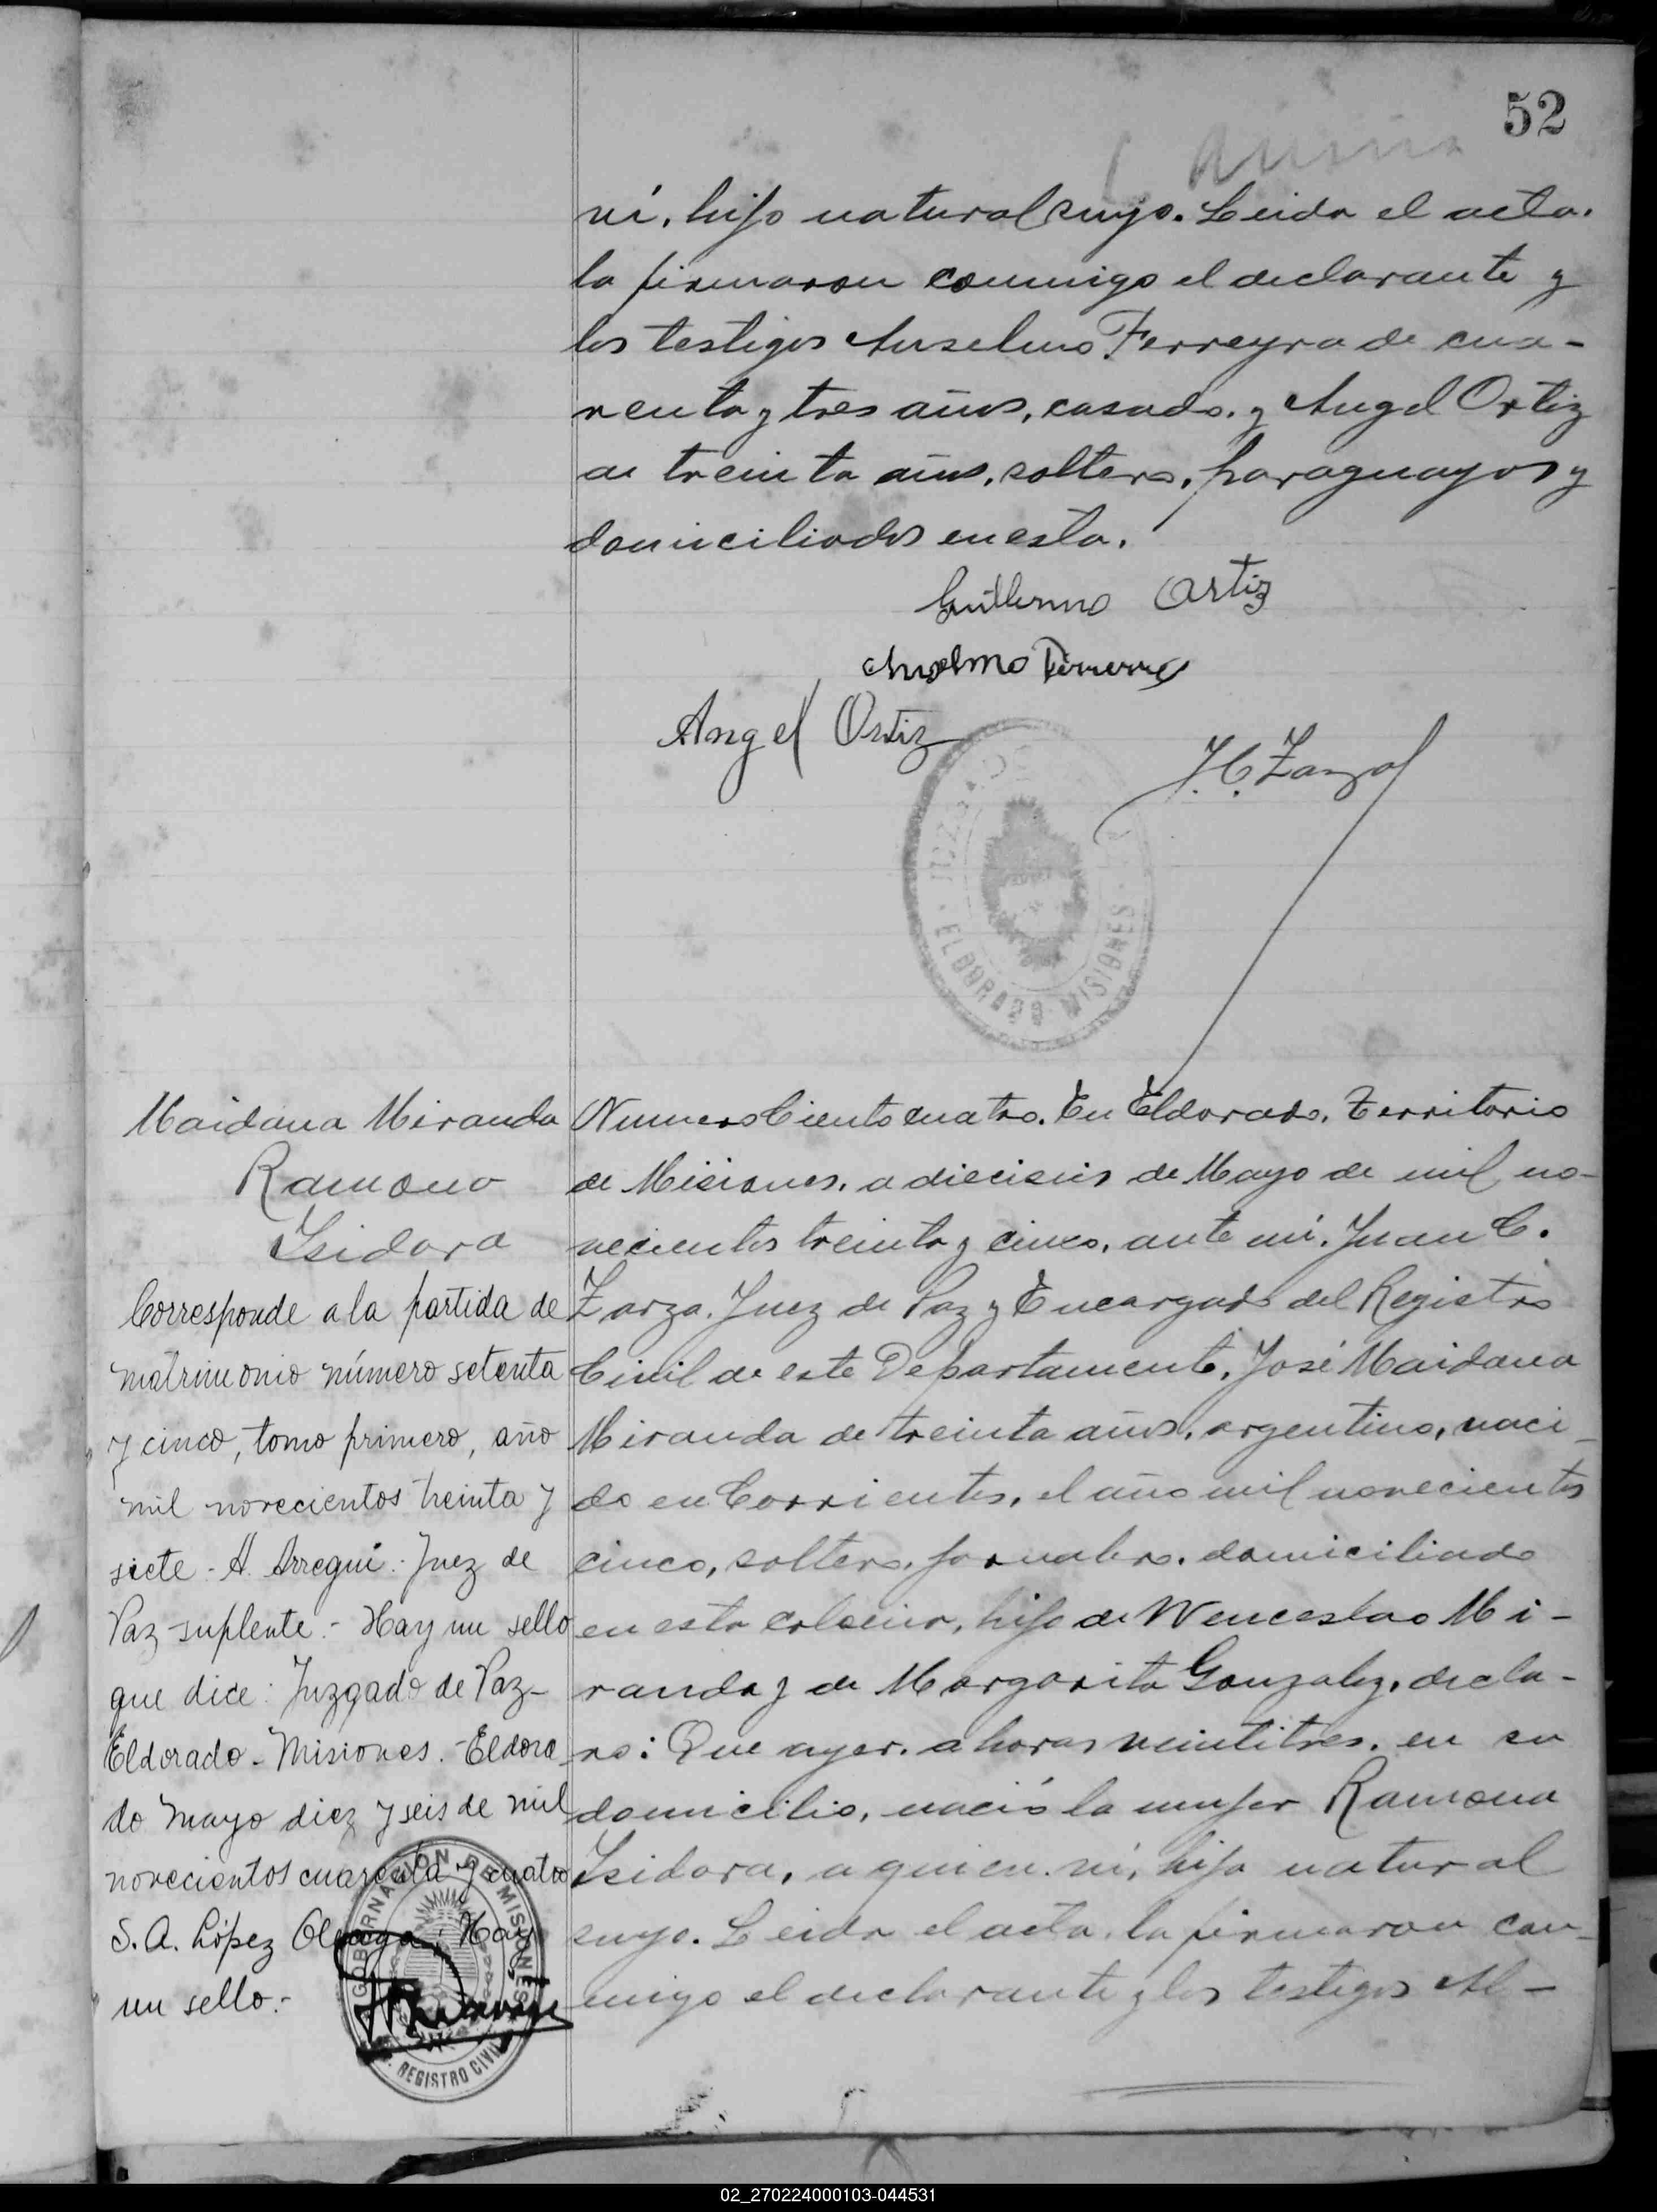 52
vi, hijo natural suyo. Leida el acta.
la firmaron conmigo el declarante y
los testigos Anselmo Ferreyra de cua-
renta y tres años, casado, y Angel Ortiz
de treinta años, soltero, paraguayos y
domiciliados en esta.
Guillermo Ortiz
Anselmo
Angel Ortiz
J. C. Zarza
JUZGADO
ELDORADO MISIONES
Maidana Miranda
Ramona
Isidora
Corresponde a la partida de
matrimonio número setenta
y cinco, tomo primero, año
mil novecientos treinta y
siete - A. Arregui: Juez de
Paz suplente. - Hay un sello
que dice: Juzgado de Paz -
Eldorado - Misiones. - Eldora
do Mayo diez y seis de mil
novecientos cuarenta y cuatro
S. A. López Hay
un sello. -
GOBERNACION DE MISIONES
REGISTRO CIVIL
Numero Ciento cuatro. En Eldorado, Territorio
de Misiones, a dieciseis de Mayo de mil no-
vecientos treinta y cinco, ante mí, Juan C.
Zarza, Juez de Paz y Encargado del Registro
Civil de este Departamento, José Maidana
Miranda de treinta años, argentino, naci-
do en Corrientes, el año mil novecientos
cinco, soltero, jornalero, domiciliado
en esta colonia, hijo de Wenceslao Mi-
randa y de Margarita Gonzalez, decla-
ro: Que ayer, a horas veintitres, en su
domicilio, nació la mujer Ramona
Isidora, a quien ví, hija natural
suya. Leida el acta, la firmaron con-
migo el declarante y los testigos Al-
02_270224000103-044531